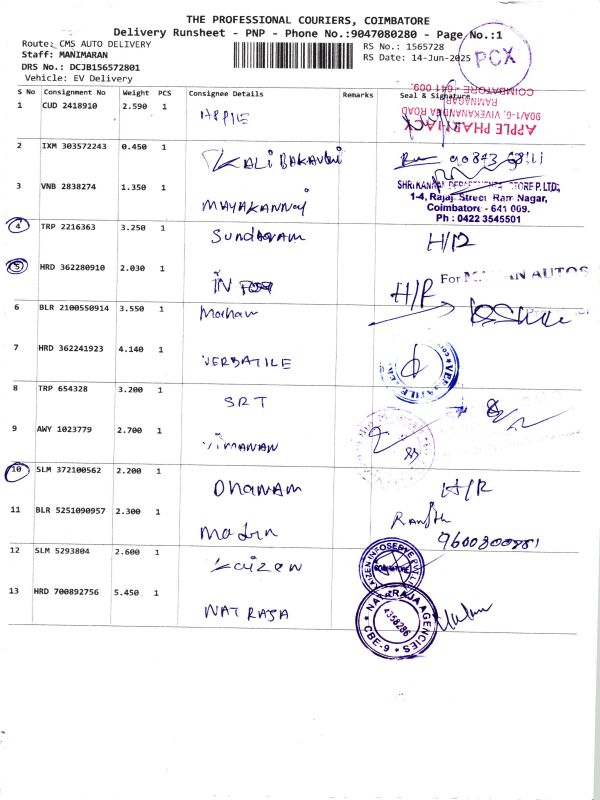 THE PROFESSIONAL COURIERS, COIMBATORE
Delivery Runsheet - PNP - Phone No.:9047080280 - Page No.:1
Route: CMS AUTO DELIVERY
RS No.: 1565728
Staff: MANIMARAN
RS Date: 14-Jun-2025
DRS No.: DCJB156572801
Vehicle: EV Delivery
PCX
S No Consignment No Weight PCS Consignee Details Remarks Seal & Signature
1 CUD 2418910 2.590 1 APPLE
APPLE PHARMACY
90A/1-6, VIVEKANANDA ROAD
RAMNAGAR
COIMBATORE - 641 009.
2 IXM 303572243 0.450 1
3 VNB 2838274 1.350 1
SHRI KANNAN DEPARTMENTAL STORE P. LTD;
1-4, Rajaji Street Ram Nagar,
Coimbatore - 641 009.
Ph : 0422 3545501
4 TRP 2216363 3.250 1 Sundaram H/R
5 HRD 362280910 2.030 1 IN H/R
For AUTOS
6 BLR 2100550914 3.550 1 Mohan
7 HRD 362241923 4.140 1 VERBATILE
8 TRP 654328 3.200 1 SRT
9 AWY 1023779 2.700 1 VIMANAN
10 SLM 372100562 2.200 1 Dhanam H/R
11 BLR 5251090957 2.300 1 9600800881
12 SLM 5293804 2.600 1 Kaizen
KAIZEN INFOSERVE PVT LTD
13 HRD 700892756 5.450 1 NATRAJA
NATRAJA AGENCIES
4358286
CBE-9